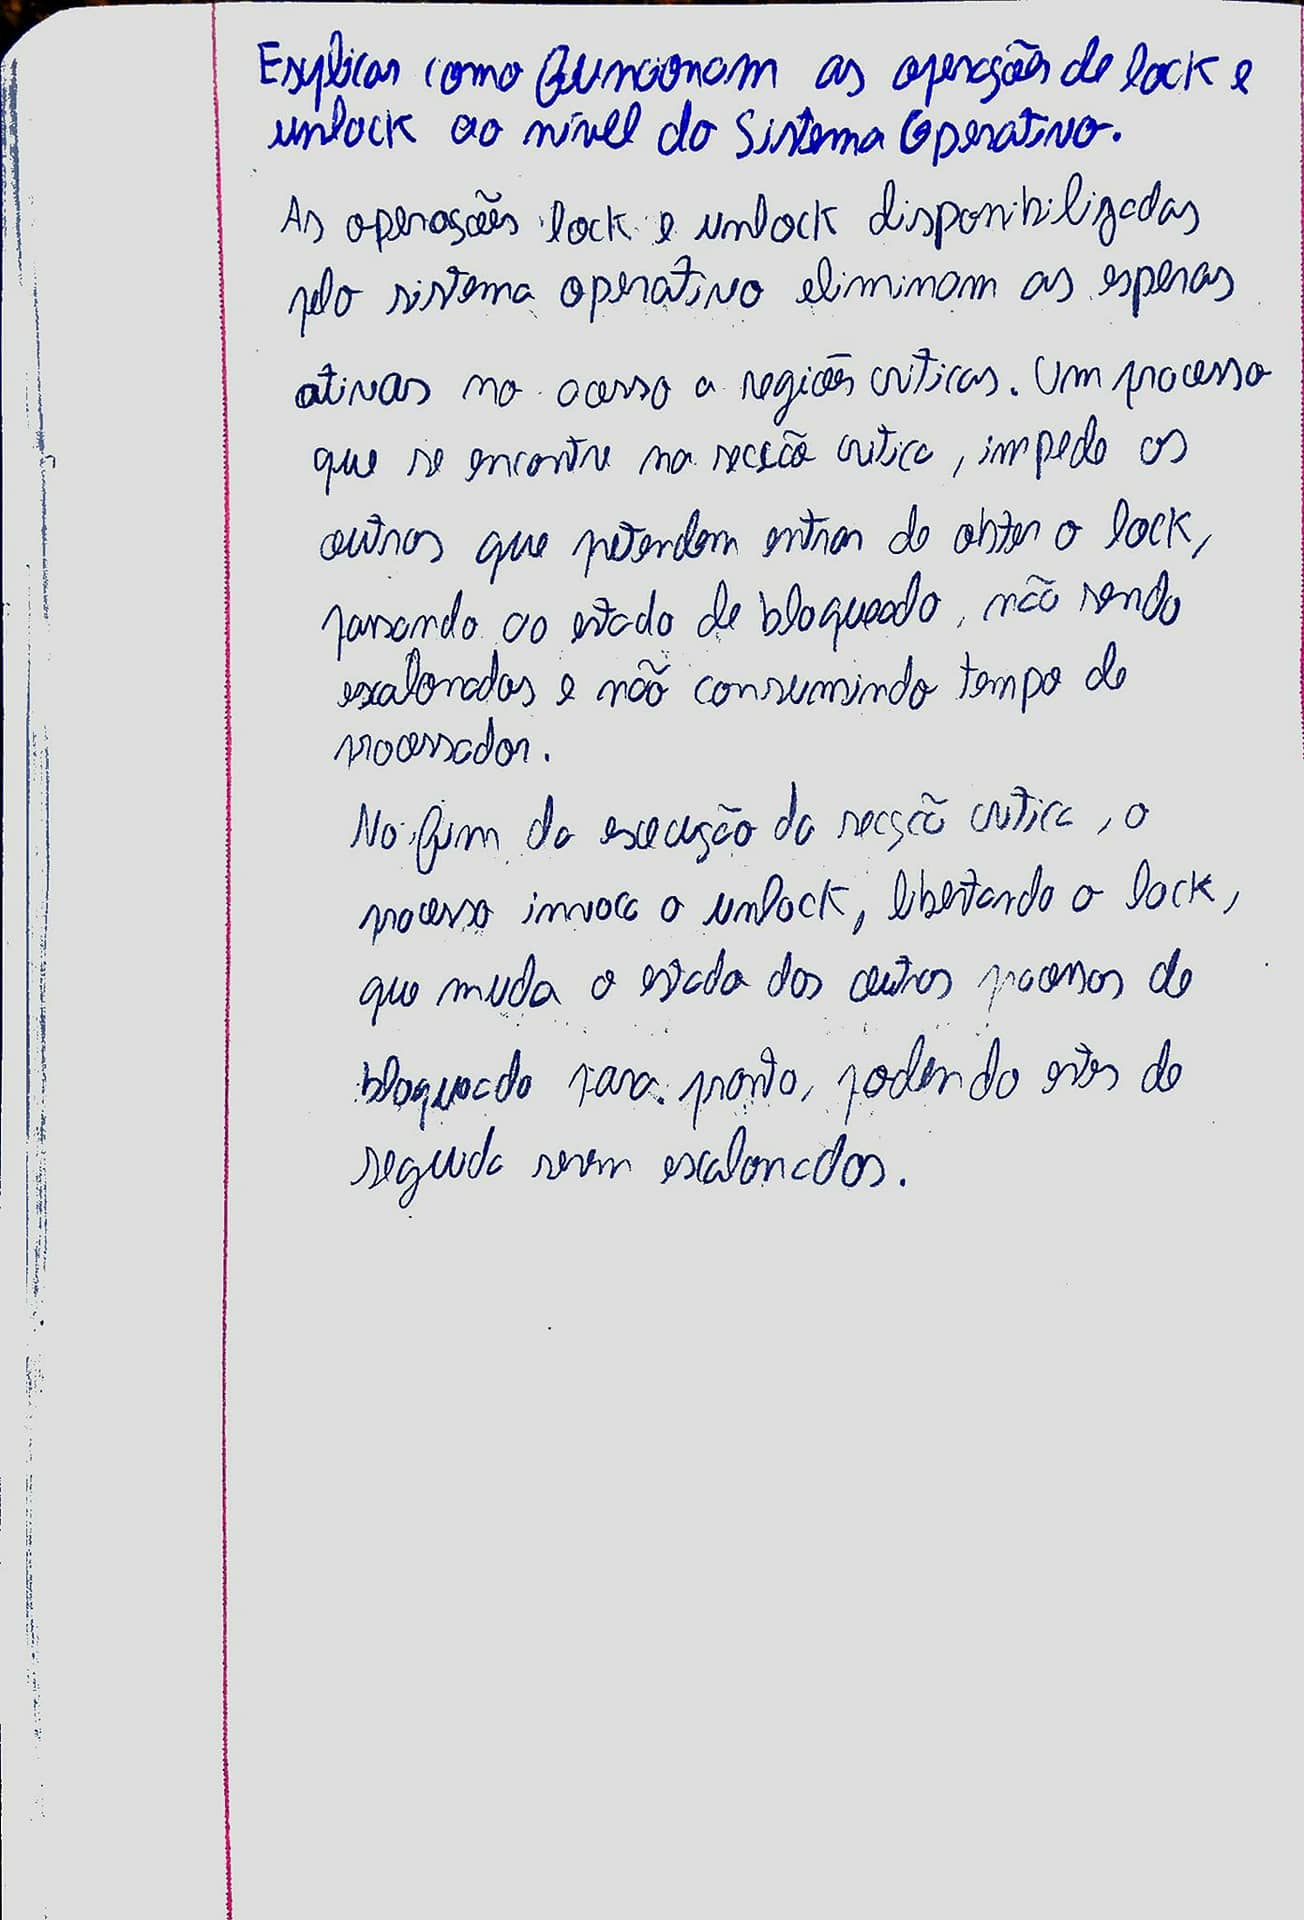 Explicar como funcionam as operações de lock e
unlock ao nível do Sistema Operativo.
As operações lock e unlock disponibilizadas
pelo sistema operativo eliminam as esperas
ativas no acesso a regiões criticas. Um processo
que se encontre na secção critica, impede os
outros que pretendem entrar de obter o lock,
passando ao estado de bloqueado, não sendo
escalonados e não consumindo tempo de
processador.
No fim da execução da secção critica, o
processo invoca o unlock, libertando o lock,
que muda o estado dos outros processos de
bloqueado para pronto, podendo estes de
seguida serem escalonados.